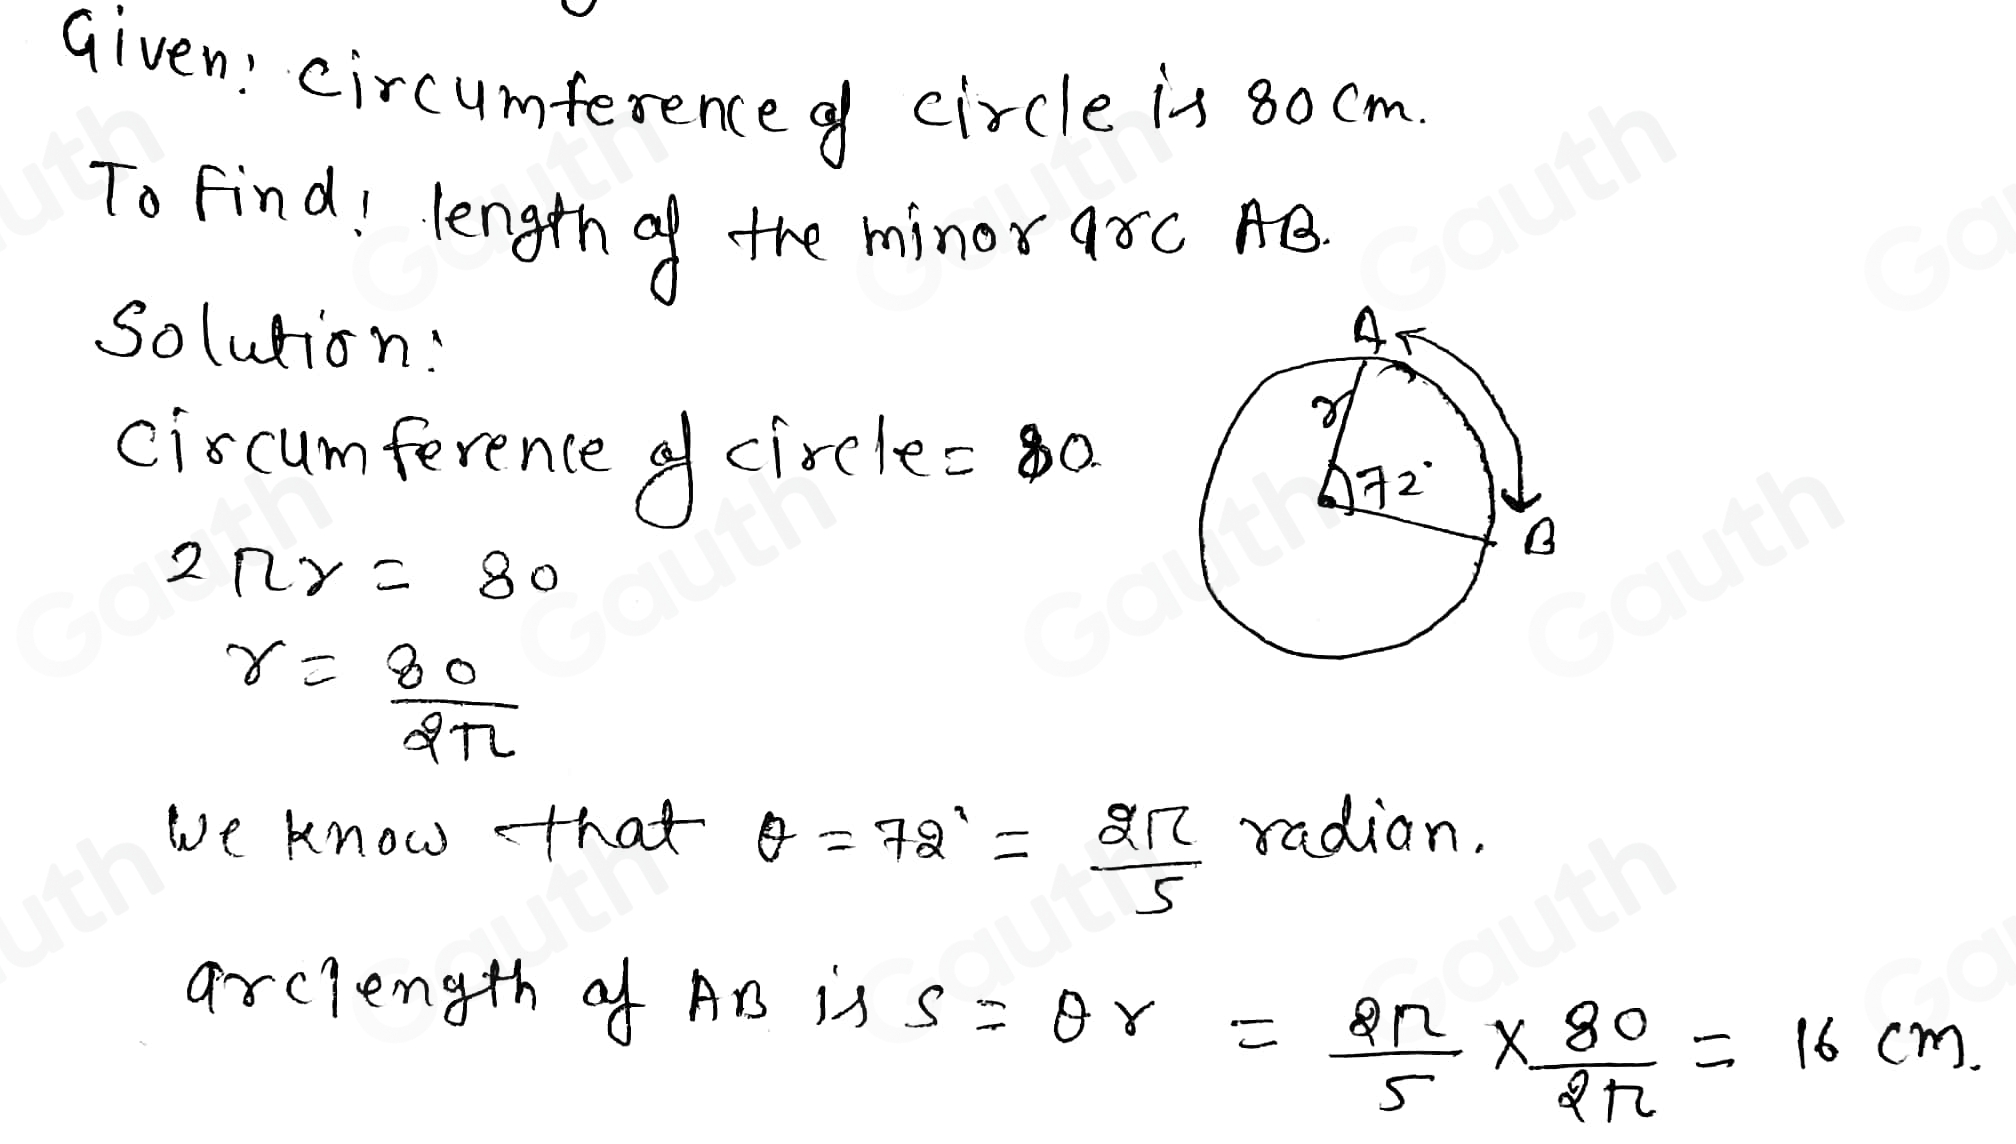 Given: circumference of circle is 80 cm.
To Find: length of the minor arc AB.
Solution:
Circumference of circle = 80
A
r
72°
B
2πr = 80
r = 80/2π
We know that θ = 72° = 2π/5 radian.
arclength of AB is s = θr = 2π/5 × 80/2π = 16 cm.